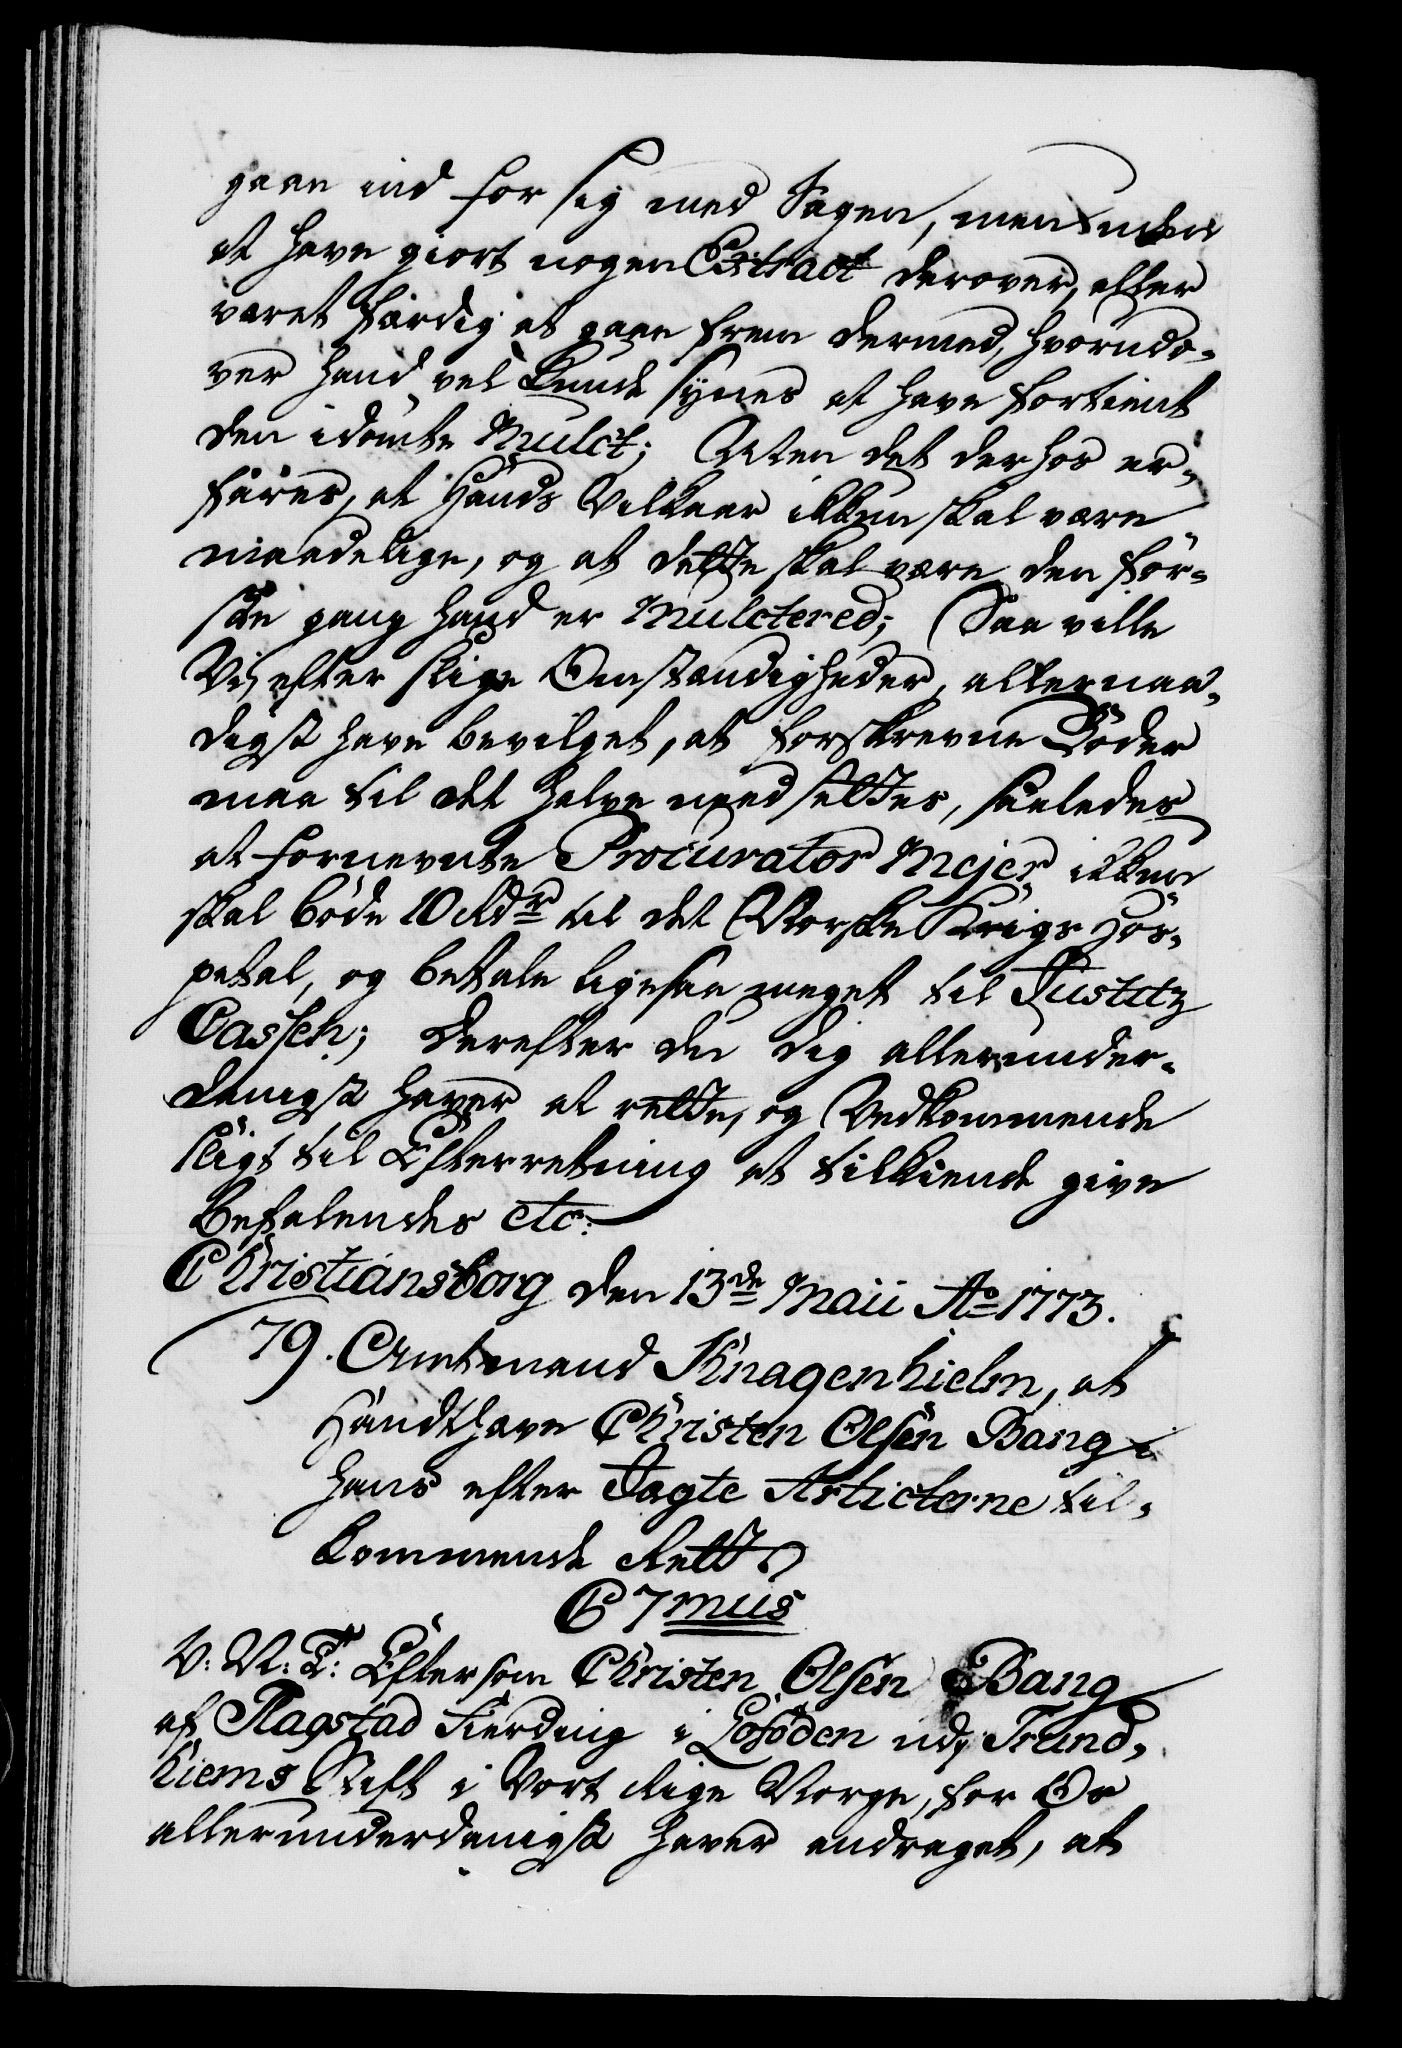 gaae ind for sig med Sagen, men uden
at have giort nogen Extract derover, eller
været færdig at gaae frem dermed, hvorudo-
ver hand vel kunde synes at have fortient
den idömte Mulct; Men det derhos er-
fares, at Hands Vilkaar ikkun skal være
maadelige, og at dette skal være den för-
ste gang hand er Mulctered; Saa ville
Vi, efter slige Omstændigheder, allernaa-
digst have bevilget, at forskrevne Böder
maa til det halve nedsettes, saaledes
at fornevnte Procurator Mejer ikkun
skal böde 10 Rdr til det Norske Krigs Hos-
petal, og betale ligesaa meget til Justitz
Cassen; derefter du dig allerunder-
danigst haver at rette, og Vedkommende
sligt til Efterretning at tilkiende give
Befalendes etc:
Christiansborg den 13de Maii Ao 1773.
79. Amtmand Knagenhielm, at
Handthave Christen Olsen Bang i
hans efter Jagte Articlerne til-
kommende Rett.
C 7mus
V: N: T: Eftersom Christen Olsen Bang
af Flagstad Fierding i Lofoden udj Trund-
hiems Stift i Vort Rige Norge, for Os
allerunderdanigst haver andraget, at